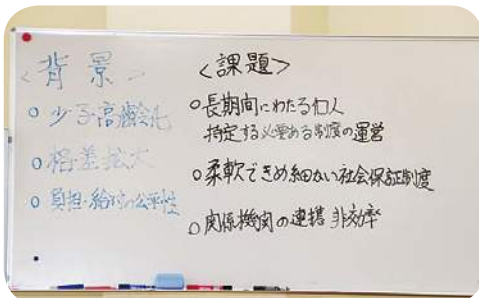 <背景>
○ 少子高齢化
○ 格差拡大
○ 負担・給付の公平性
<課題>
○長期間にわたる個人
特定する必要ある制度の運営
○柔軟できめ細ない社会保証制度
○関係機関の連携 非効率